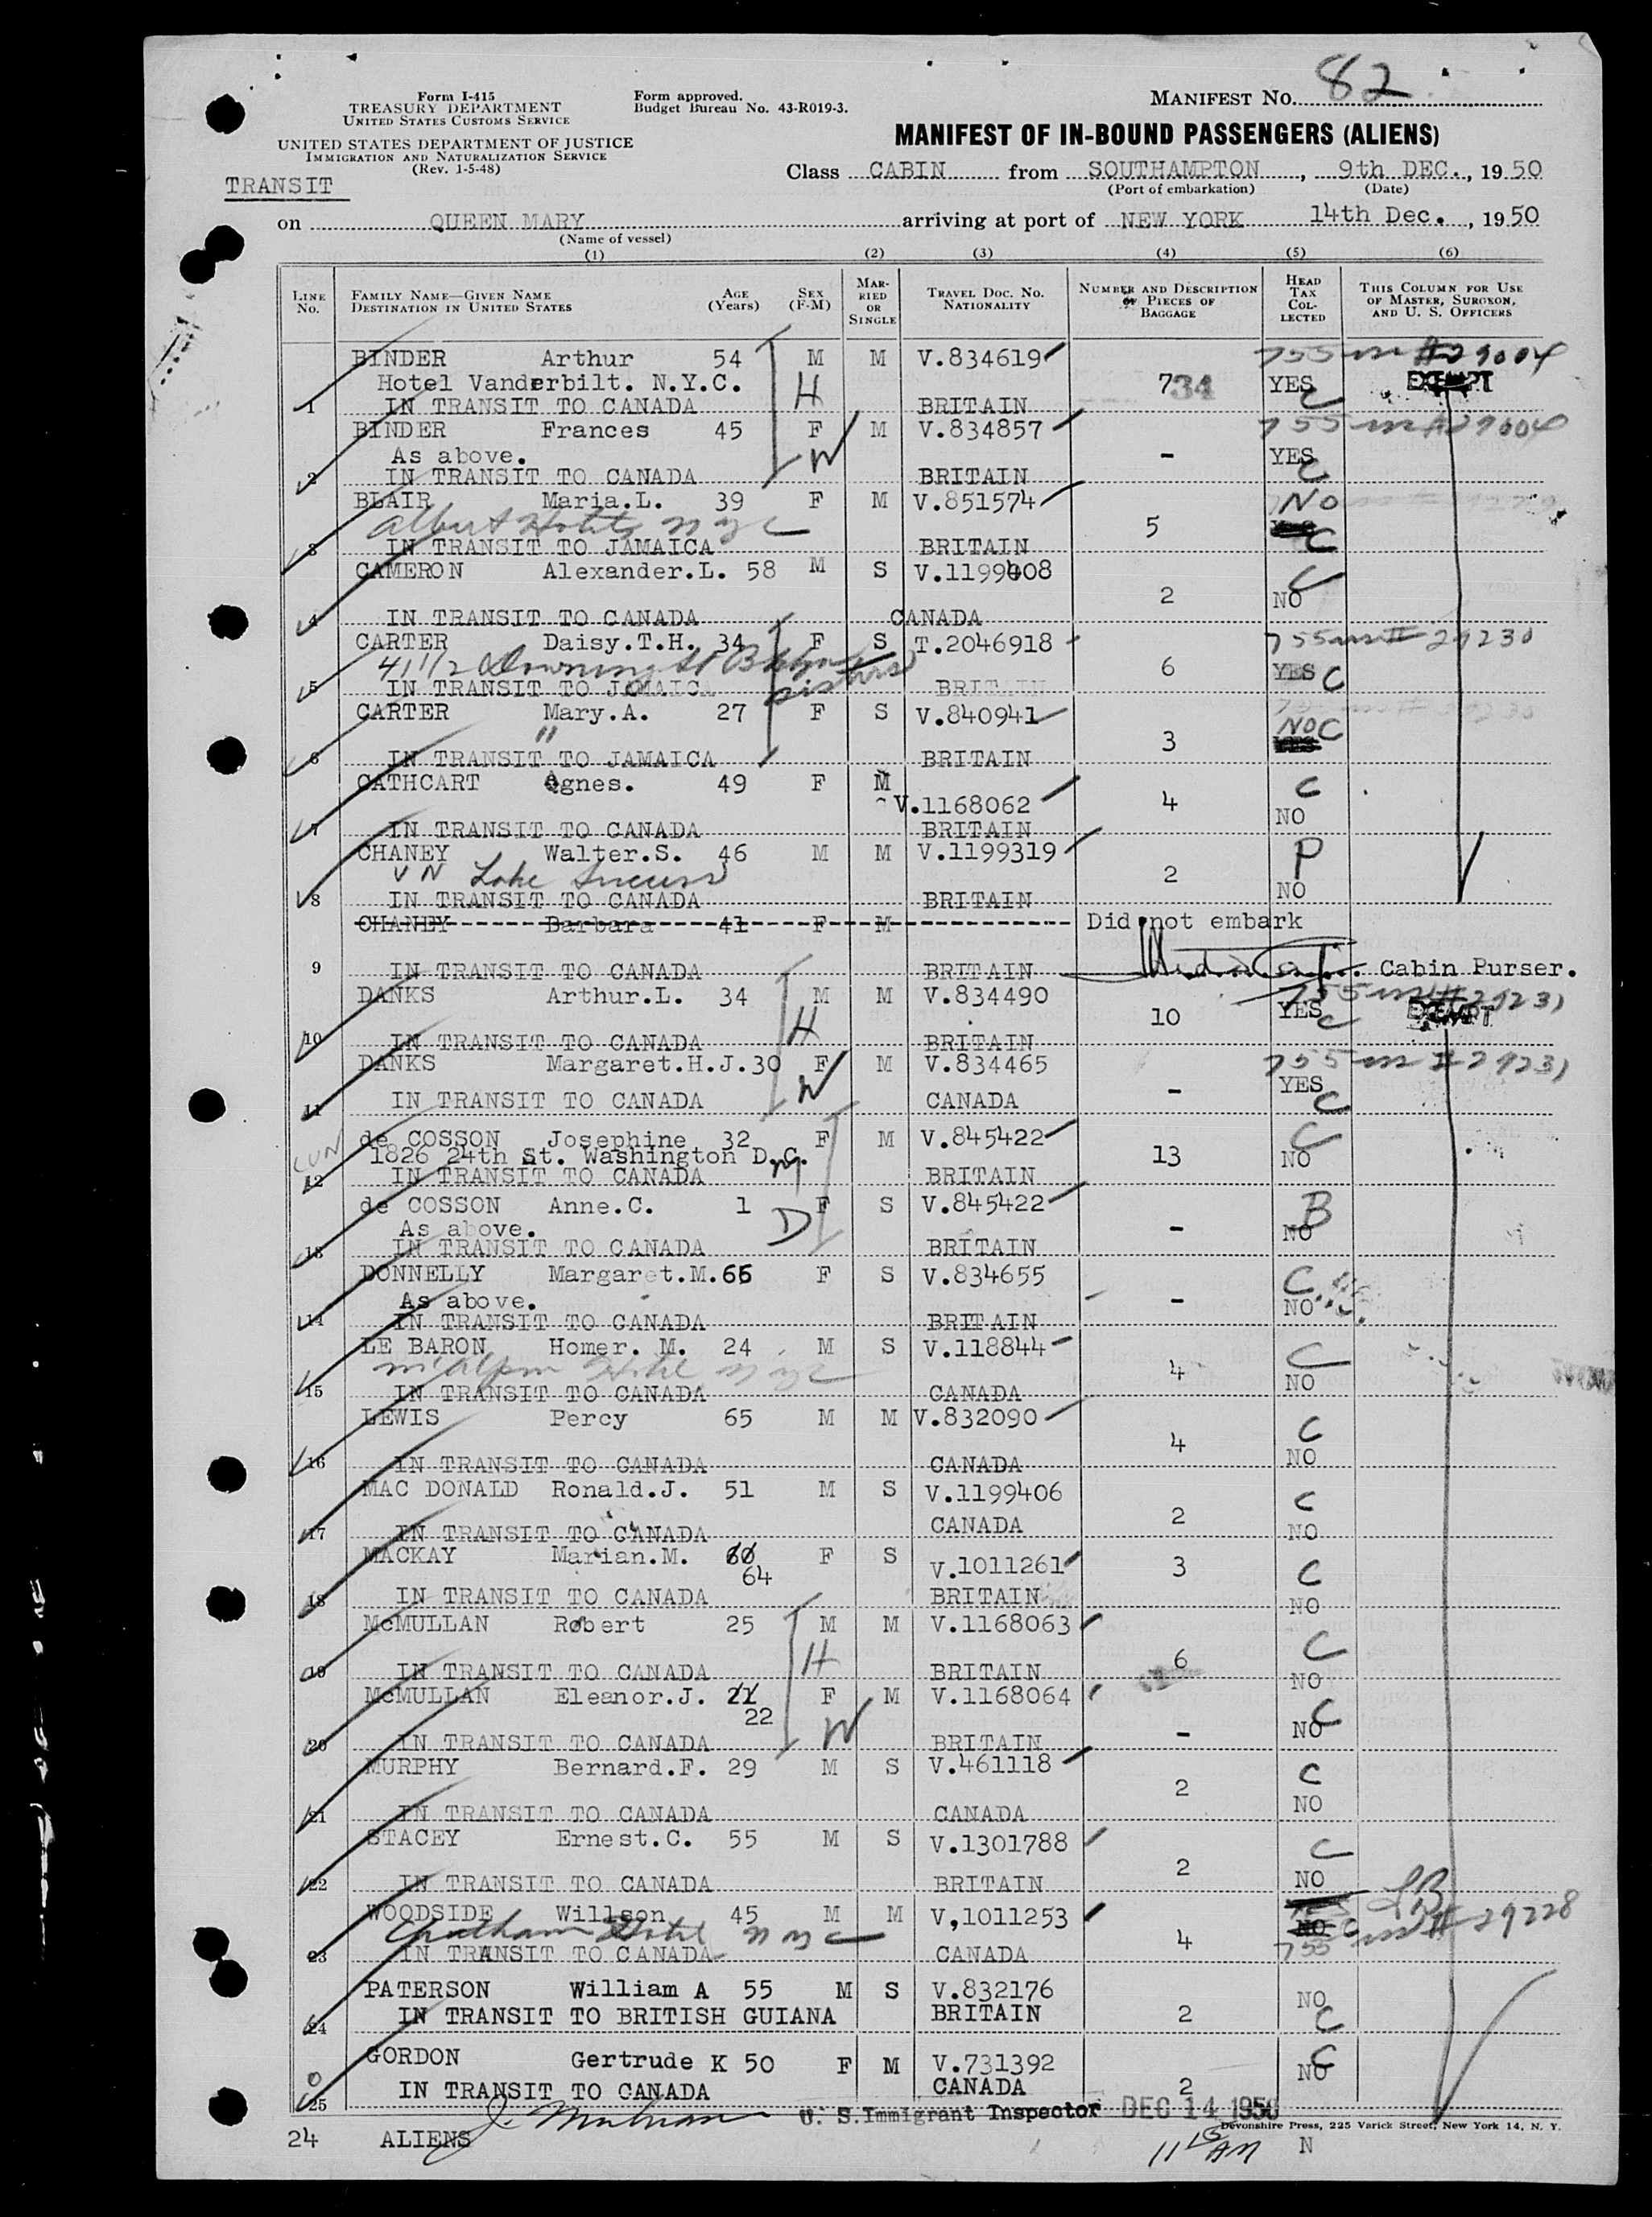 82
Form I-415
TREASURY DEPARTMENT
UNITED STATES CUSTOMS SERVICE
UNITED STATES DEPARTMENT OF JUSTICE
IMMIGRATION AND NATURALIZATION SERVICE
(Rev. 1-5-48)
Form approved.
Budget Bureau No. 43-R019-3.
MANIFEST No.
MANIFEST OF IN-BOUND PASSENGERS (ALIENS)
Class CABIN from SOUTHAMPTON, 9th DEC., 1950
(Port of embarkation) (Date)
TRANSIT
on QUEEN MARY arriving at port of NEW YORK 14th Dec., 1950
(Name of vessel)
(1) (2) (3) (4) (5) (6)
LINE No. FAMILY NAME—GIVEN NAME DESTINATION IN UNITED STATES AGE (Years) SEX (F-M) MARRIED OR SINGLE TRAVEL DOC. NO. NATIONALITY NUMBER AND DESCRIPTION OF PIECES OF BAGGAGE HEAD TAX COLLECTED THIS COLUMN FOR USE OF MASTER, SURGEON, AND U. S. OFFICERS
BINDER Arthur 54 M M V.834619 755 in # 29004
Hotel Vanderbilt. N.Y.C. H 734 YES EXEMPT
1 IN TRANSIT TO CANADA BRITAIN C
BINDER Frances 45 F M V.834857 755 in # 29004
As above. W - YES
2 IN TRANSIT TO CANADA BRITAIN C
BLAIR Maria.L. 39 F M V.851574 NO
Albert Hotel N Y C 5 YES
3 IN TRANSIT TO JAMAICA BRITAIN C
CAMERON Alexander.L. 58 M S V.1199408 C
2 NO
4 IN TRANSIT TO CANADA CANADA
CARTER Daisy.T.H. 34 F S T.2046918 755 in # 29230
41 1/2 Downing St Bklyn sisters 6 YES C
5 IN TRANSIT TO JAMAICA BRITAIN
CARTER Mary.A. 27 F S V.840941
" 3 NO C YES
6 IN TRANSIT TO JAMAICA BRITAIN
CATHCART Agnes. 49 F M C
V.1168062 4 NO
7 IN TRANSIT TO CANADA BRITAIN
CHANEY Walter.S. 46 M M V.1199319 P
U N Lake Success 2 NO
8 IN TRANSIT TO CANADA BRITAIN
CHANEY Barbara 41 F M Did not embark
9 IN TRANSIT TO CANADA BRITAIN Cabin Purser.
DANKS Arthur.L. 34 M M V.834490 755 in # 29231
H 10 YES C EXEMPT
10 IN TRANSIT TO CANADA BRITAIN
DANKS Margaret.H.J. 30 F M V.834465 755 in # 29231
W - YES
11 IN TRANSIT TO CANADA CANADA C
de COSSON Josephine 32 F M V.845422 C
1826 24th St. Washington D.C. 13 NO
12 IN TRANSIT TO CANADA BRITAIN
de COSSON Anne.C. 1 F S V.845422 B
As above. D - NO
13 IN TRANSIT TO CANADA BRITAIN
DONNELLY Margaret.M. 66 F S V.834655 C
As above. - NO
14 IN TRANSIT TO CANADA BRITAIN
LE BARON Homer. M. 24 M S V.118844 C
McAlpin Hotel N Y C 4 NO
15 IN TRANSIT TO CANADA CANADA
LEWIS Percy 65 M M V.832090 C
4 NO
16 IN TRANSIT TO CANADA CANADA
MAC DONALD Ronald.J. 51 M S V.1199406 C
2 NO
17 IN TRANSIT TO CANADA CANADA
MACKAY Marian.M. 60 F S
64 V.1011261 3 C
18 IN TRANSIT TO CANADA BRITAIN NO
McMULLAN Robert 25 M M V.1168063
H 6 C
19 IN TRANSIT TO CANADA BRITAIN NO
McMULLAN Eleanor.J. 21 F M V.1168064
22 W - C NO
20 IN TRANSIT TO CANADA BRITAIN
MURPHY Bernard.F. 29 M S V.461118 C
2 NO
21 IN TRANSIT TO CANADA CANADA
STACEY Ernest.C. 55 M S V.1301788 C
2 NO
22 IN TRANSIT TO CANADA BRITAIN
WOODSIDE Willson 45 M M V,1011253
Chatham Hotel N Y C 4 NO C 755 in # 29228
23 IN TRANSIT TO CANADA CANADA
PATERSON William A 55 M S V.832176 NO
24 IN TRANSIT TO BRITISH GUIANA BRITAIN 2 C
GORDON Gertrude K 50 F M V.731392 C NO
25 IN TRANSIT TO CANADA CANADA 2
U. S. Immigrant Inspector DEC 14 1950
Devonshire Press, 225 Varick Street, New York 14, N. Y.
24 ALIENS 11 15 AM N